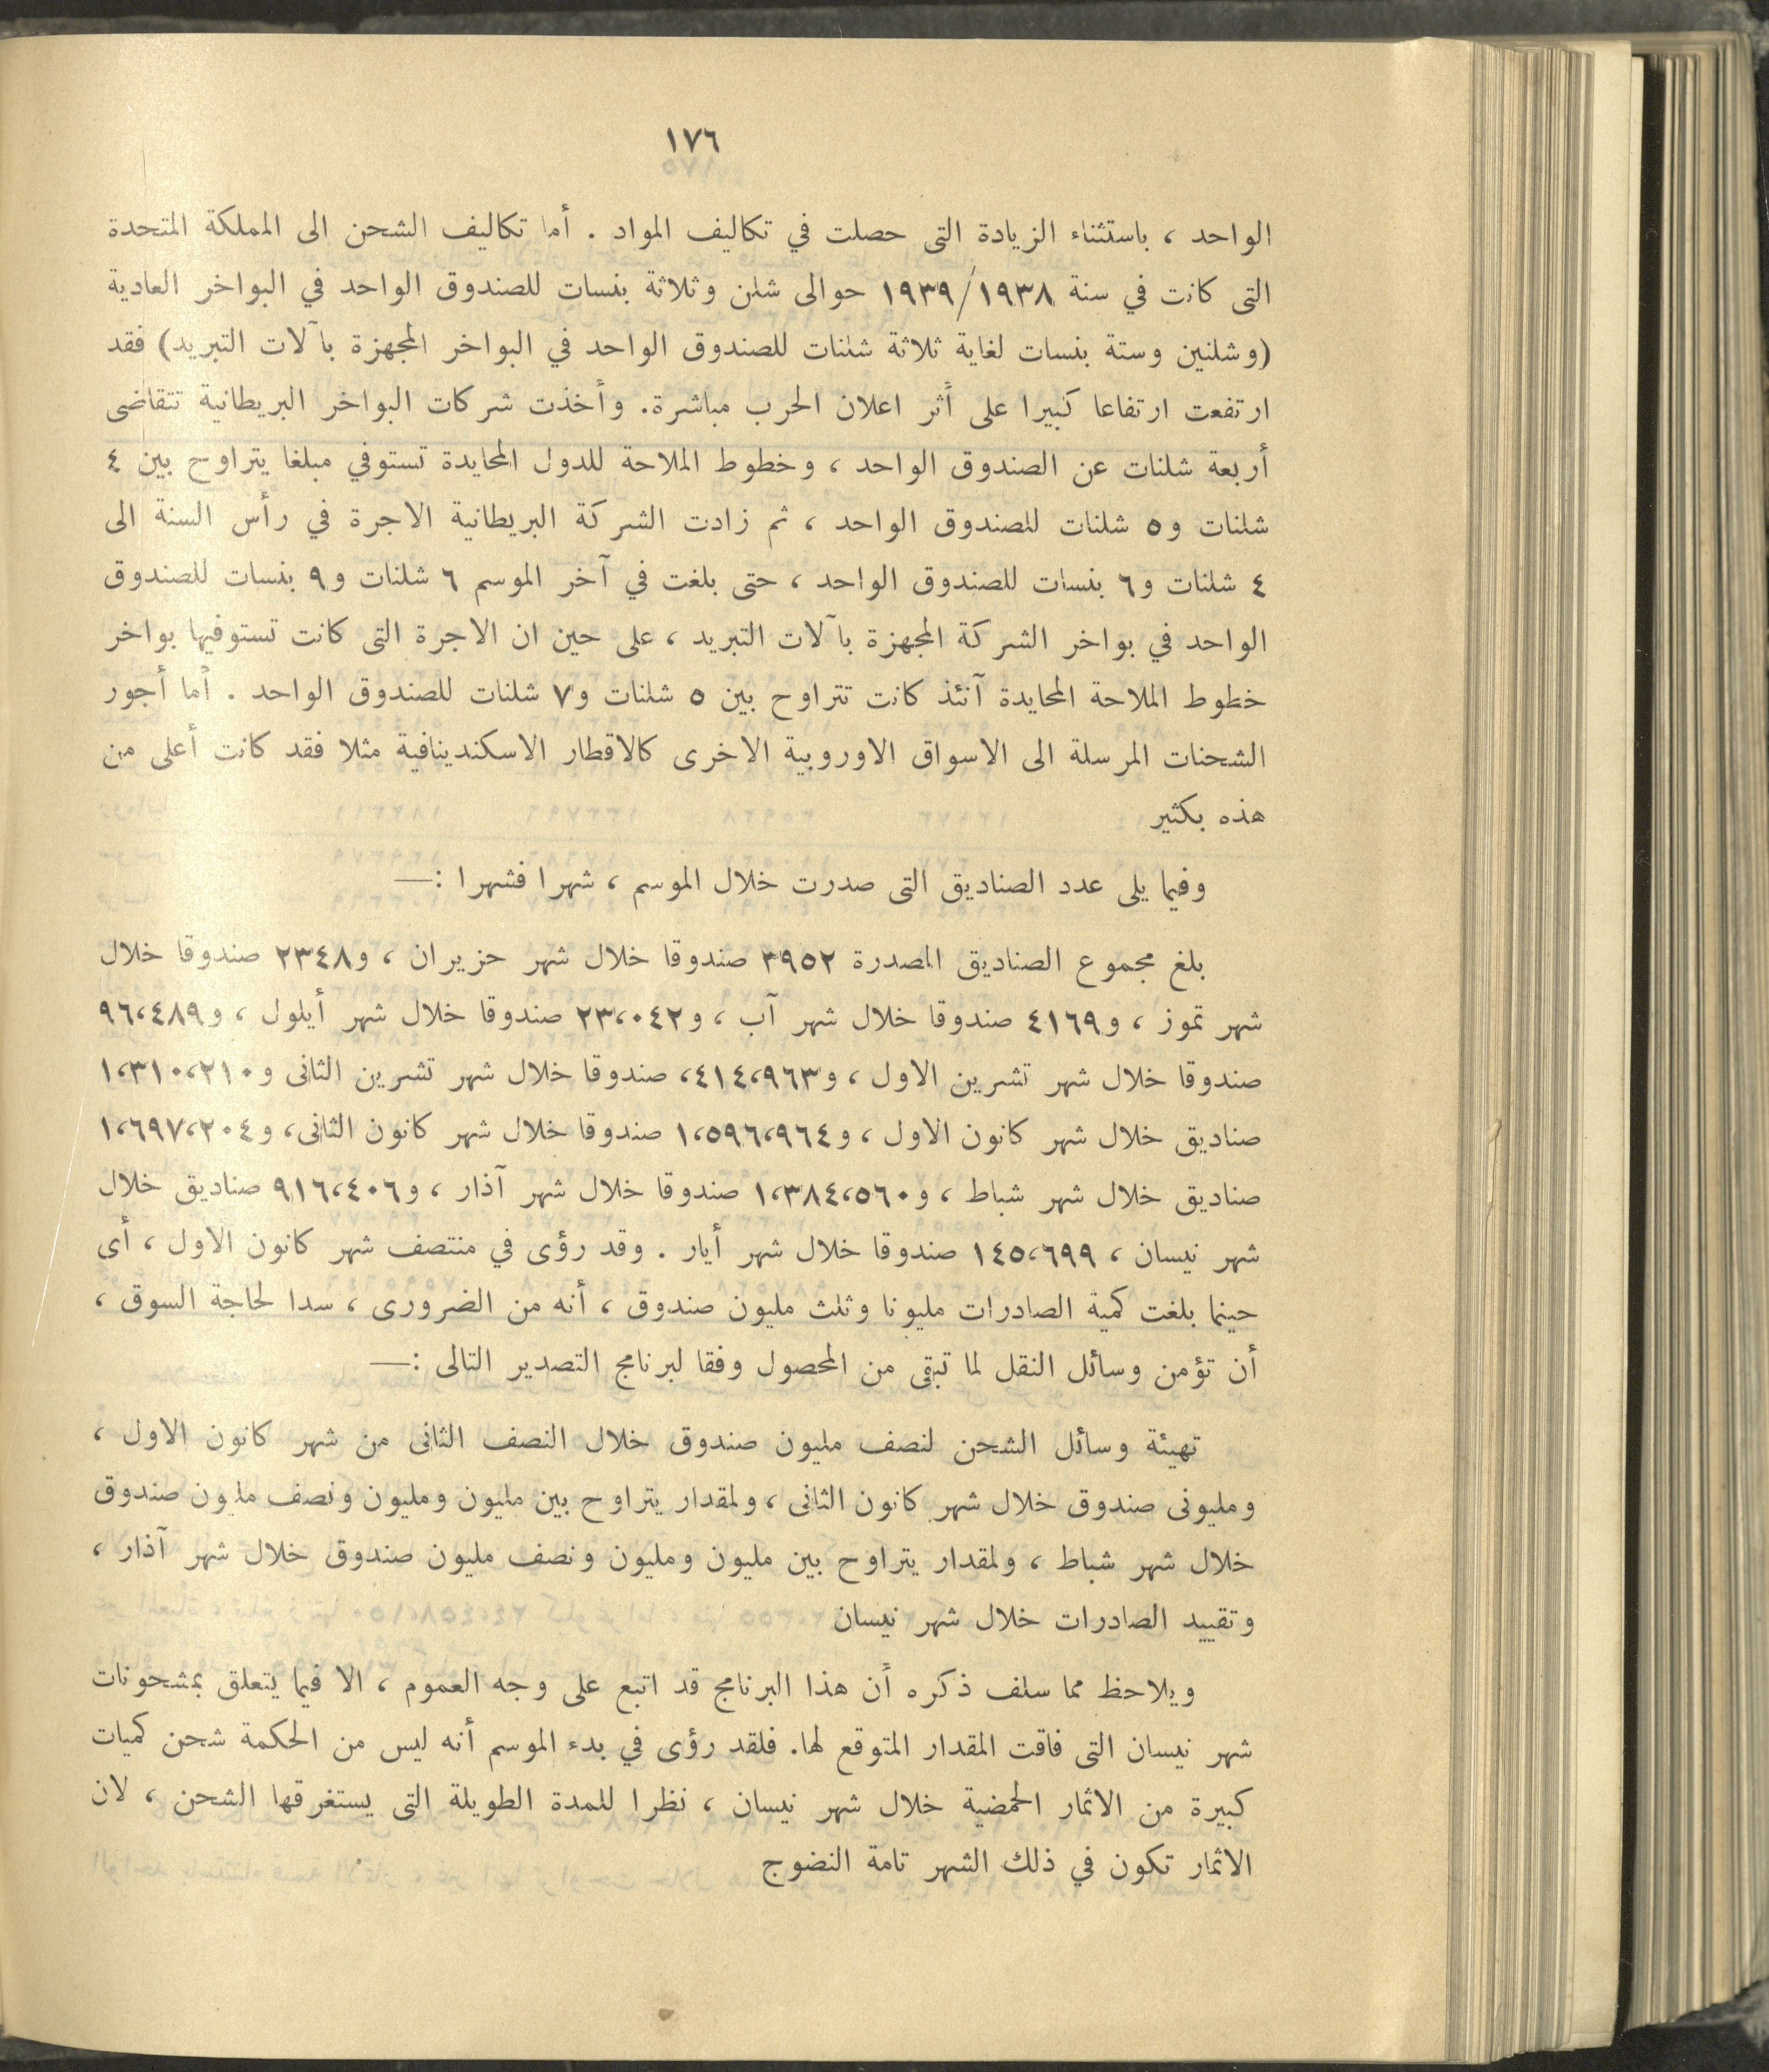 ١٧٦
الواحد ، باستثناء الزيادة التى حصلت في تكاليف المواد . أما تكاليف الشحن الى المملكة المتحدة
التى كانت في سنة ١٩٣٩/١٩٣٨ حوالى شلن وثلاثة بنسات للصندوق الواحد في البواخر العادية
(وشلنين وستة بنسات لغاية ثلاثة شلنات للصندوق الواحد في البواخر المجهزة بآلات التبريد) فقد
ارتفعت ارتفاعا كبيرا على أثر اعلان الحرب مباشرة. وأخذت شركات البواخر البريطانية تتقاضى
أربعة شلنات عن الصندوق الواحد ، وخطوط الملاحة للدول المحايدة تستوفي مبلغا يتراوح بين ٤
شلنات و٥ شلنات للصندوق الواحد ، ثم زادت الشركة البريطانية الاجرة في رأس السنة الى
٤ شلنات و٦ بنسات للصندوق الواحد ، حتى بلغت في آخر الموسم ٦ شلنات و٩ بنسات للصندوق
الواحد في بواخر الشركة المجهزة بآلات التبريد ، على حين ان الاجرة التى كانت تستوفيها بواخر
خطوط الملاحة المحايدة آنئذ كانت تتراوح بين ٥ شلنات و٧ شلنات للصندوق الواحد . أما أجور
الشحنات المرسلة الى الاسواق الاوروبية الاخرى كالاقطار الاسكندينافية مثلا فقد كانت أعلى من
هذه بكثير
وفيما يلى عدد الصناديق التى صدرت خلال الموسم ، شهرا فشهرا :—
بلغ مجموع الصناديق المصدرة ٣٩٥٢ صندوقا خلال شهر حزيران ، و٢٣٤٨ صندوقا خلال
شهر تموز ، و٤١٦٩ صندوقا خلال شهر آب ، و٢٣،٠٤٢ صندوقا خلال شهر أيلول ، و٩٦،٤٨٩
صندوقا خلال شهر تشرين الاول ، و٤١٤،٩٦٣، صندوقا خلال شهر تشرين الثانى و١،٣١٠،٢١٠
صناديق خلال شهر كانون الاول ، و١،٥٩٦،٩٦٤ صندوقا خلال شهر كانون الثانى، و١،٦٩٧،٢٠٤
صناديق خلال شهر شباط ، و١،٣٨٤،٥٦٠ صندوقا خلال شهر آذار ، و٩١٦،٤٠٦ صناديق خلال
شهر نيسان ، ١٤٥،٦٩٩ صندوقا خلال شهر أيار . وقد رؤى في منتصف شهر كانون الاول ، أى
حينما بلغت كمية الصادرات مليونا وثلث مليون صندوق ، أنه من الضرورى ، سدا لحاجة السوق ،
أن تؤمن وسائل النقل لما تبقى من المحصول وفقا لبرنامج التصدير التالى :—
تهيئة وسائل الشحن لنصف مليون صندوق خلال النصف الثانى من شهر كانون الاول ،
ومليونى صندوق خلال شهر كانون الثانى ، ولمقدار يتراوح بين مليون ومليون ونصف مليون صندوق
خلال شهر شباط ، ولمقدار يتراوح بين مليون ومليون ونصف مليون صندوق خلال شهر آذار ،
وتقييد الصادرات خلال شهر نيسان
ويلاحظ مما سلف ذكره أن هذا البرنامج قد اتبع على وجه العموم ، الا فيما يتعلق بمشحونات
شهر نيسان التى فاقت المقدار المتوقع لها. فلقد رؤى في بدء الموسم أنه ليس من الحكمة شحن كميات
كبيرة من الاثمار الحمضية خلال شهر نيسان ، نظرا للمدة الطويلة التى يستغرقها الشحن ، لان
الاثمار تكون في ذلك الشهر تامة النضوج